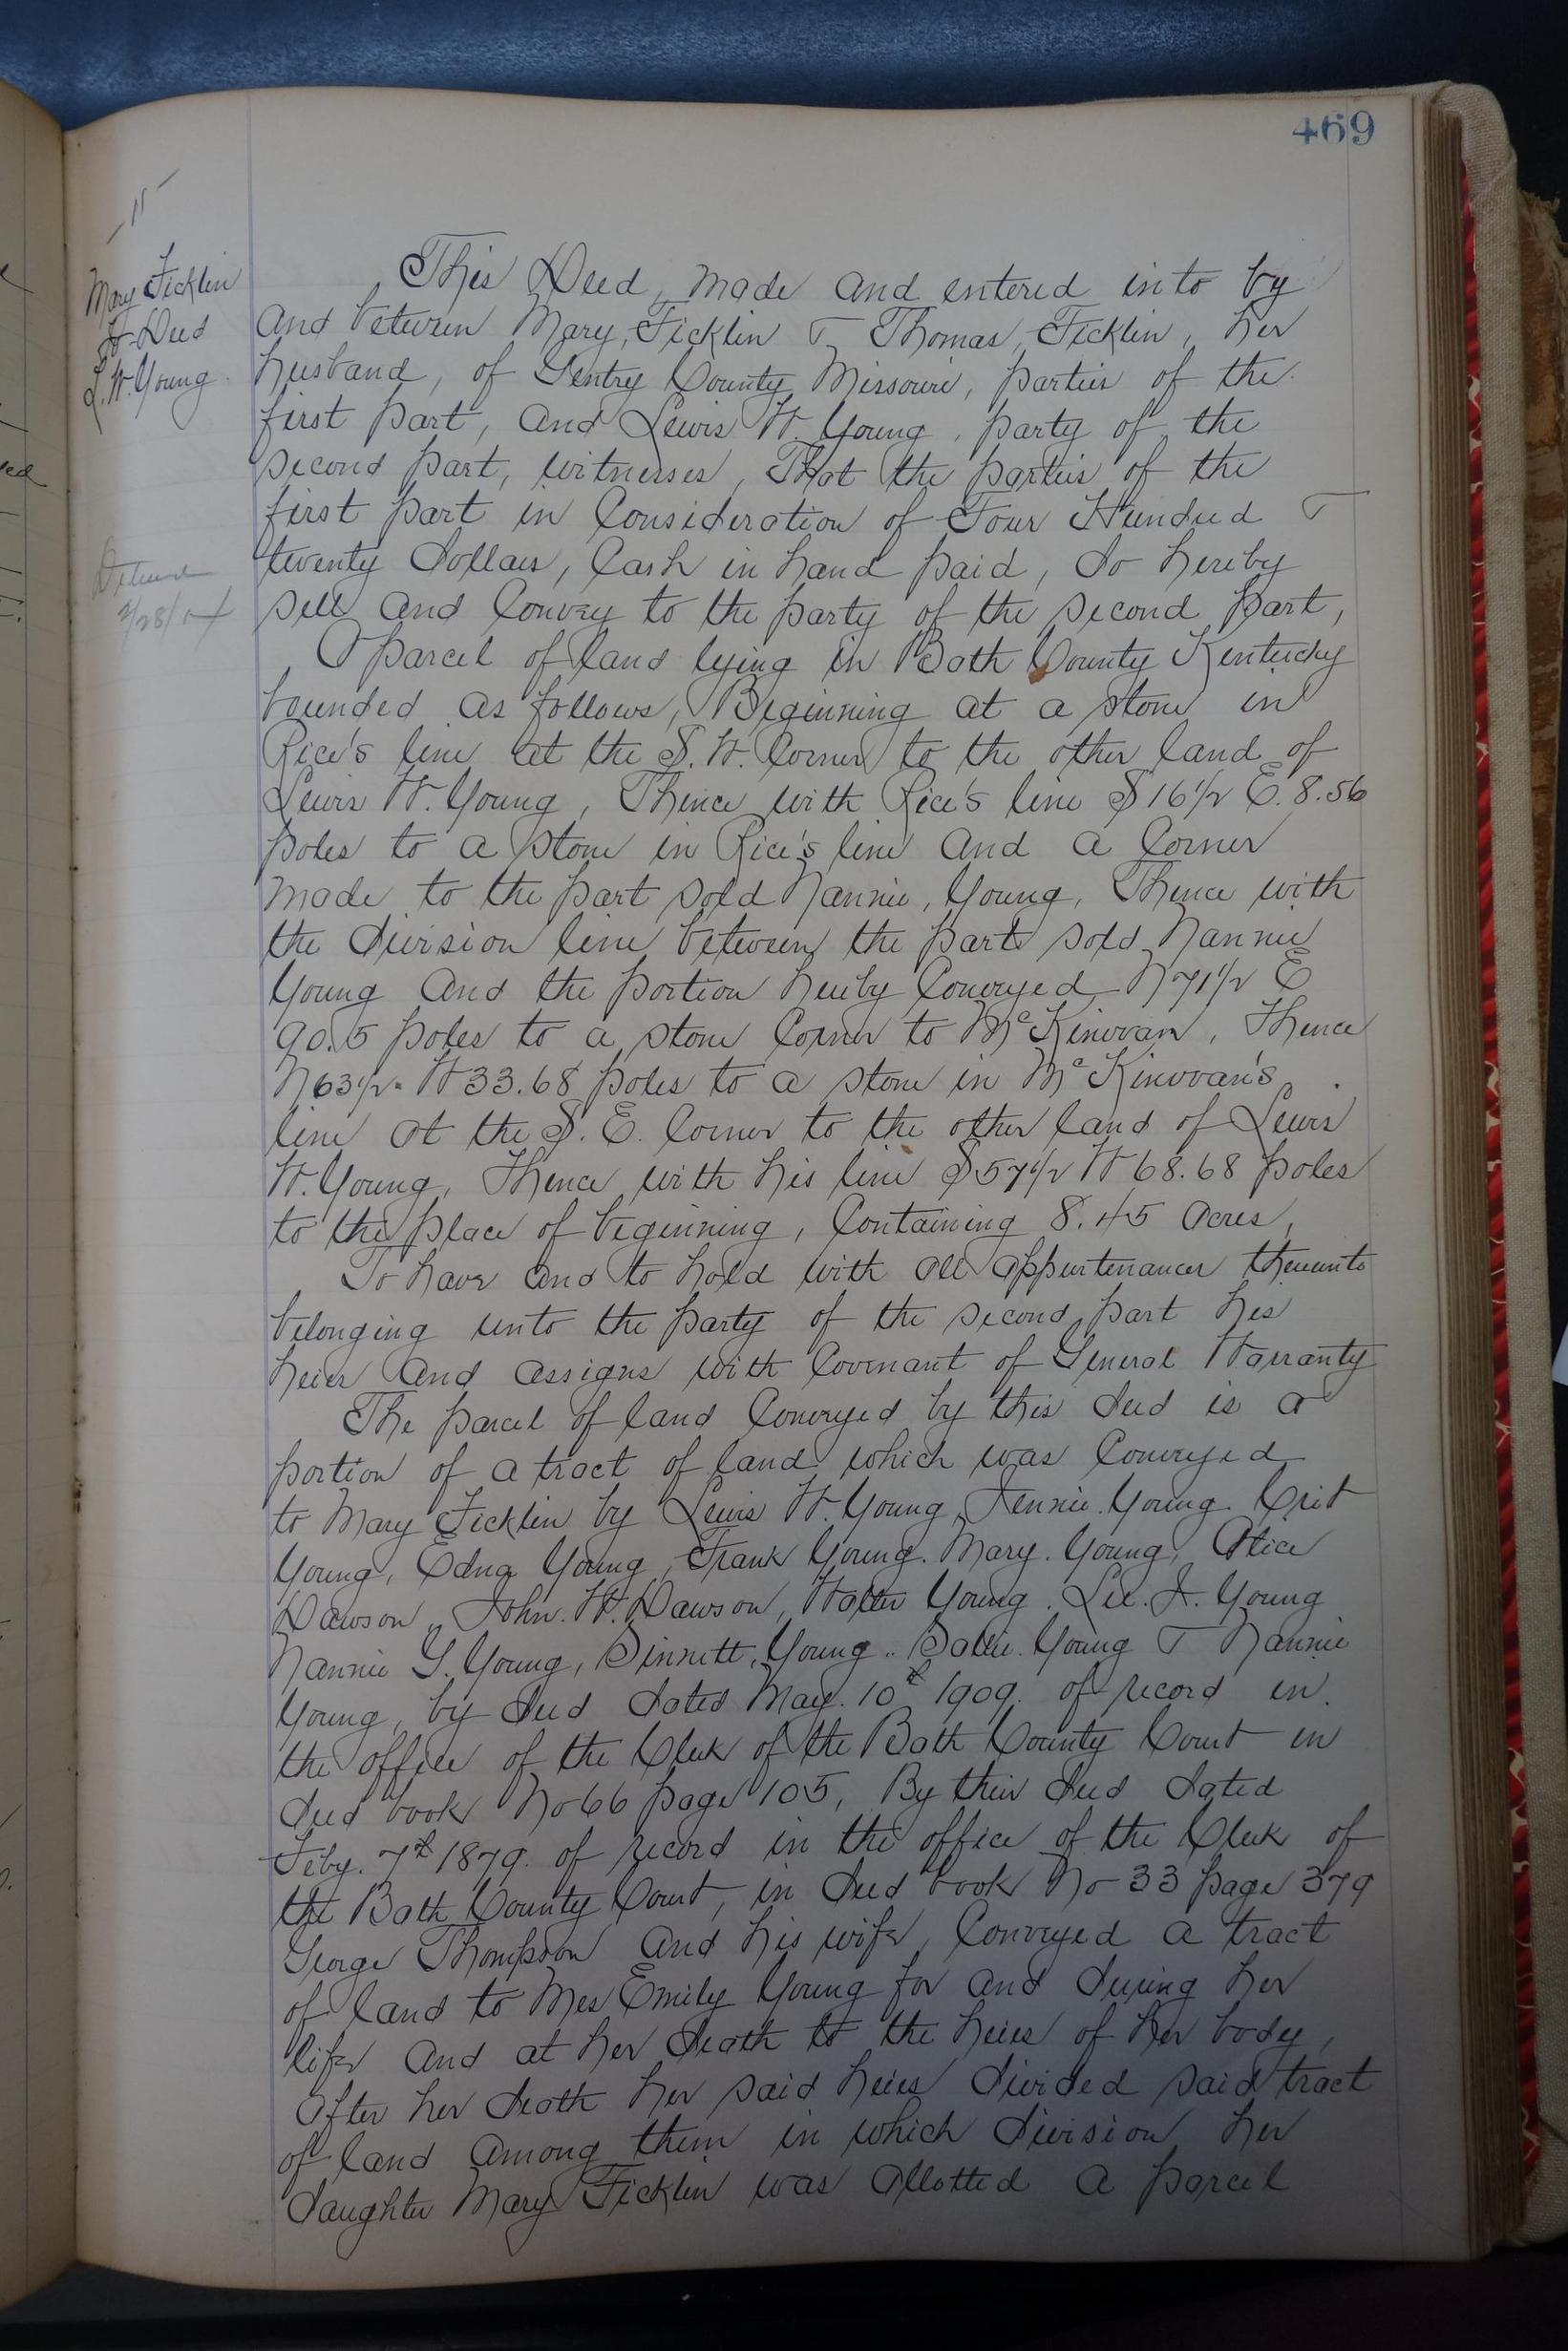 469
Mary Ficklin
To-Deed
L. W. Young.
This Deed, made and entered into by
and between Mary, Ficklin & Thomas, Ficklin, her
husband, of Gentry County Missouri, parties of the
first part, and Lewis W. Young, party of the
second part, witnesses, That the parties of the
first part in Consideration of Four Hundred &
twenty Dollars, Cash in hand paid, do hereby
sell and Convey to the party of the second part,
A parcel of land lying in Bath County Kentucky
bounded as follows, Beginning at a stone in
Rice's line at the S. W. Corner to the other land of
Lewis W. Young, Thence with Rice's line S 16 1/2 E. 8.56
poles to a stone in Rice's line and a Corner
made to the part sold Nannie, Young, Thence with
the division line between the part sold Nannie
Young and the portion hereby Conveyed N 71 1/2 E
90.5 poles to a stone Corner to McKinovan, Thence
N 63 1/2 - W 33.68 poles to a stone in McKinovan's
line at the S. E. Corner to the other land of Lewis
W. Young, Thence with his line S 57 1/2 W 68.68 poles
to the place of beginning, Containing 8.45 acres,
To have and to hold with all appurtenances thereunto
belonging unto the party of the second part his
heirs and assigns with Covenant of General Warranty
The parcel of land Conveyed by this deed is a
portion of a tract of land which was Conveyed
to Mary Ficklin by Lewis W. Young, Jennie. Young. Crit
Young, Edna Young, Frank Young. Mary. Young, Alice
Dawson, John. W. Dawson, Walter Young. Lee. J. Young
Nannie G. Young, Sinnett, Young.. Sallie. Young & Nannie
Young, by deed dated May. 10th 1909. of record in.
the office of the Clerk of the Bath County Court in
deed book No 66 page 105, By their deed dated
Feby. 7th 1879. of record in the office of the Clerk of
the Bath County Court, in deed book No 33 page 379
George Thompson and his wife, Conveyed a tract
of land to Mrs Emily Young for and during her
life and at her death to the heirs of her body,
After her death her said heirs divided said tract
of land among them in which division her
daughter Mary Ficklin was allotted a parcel